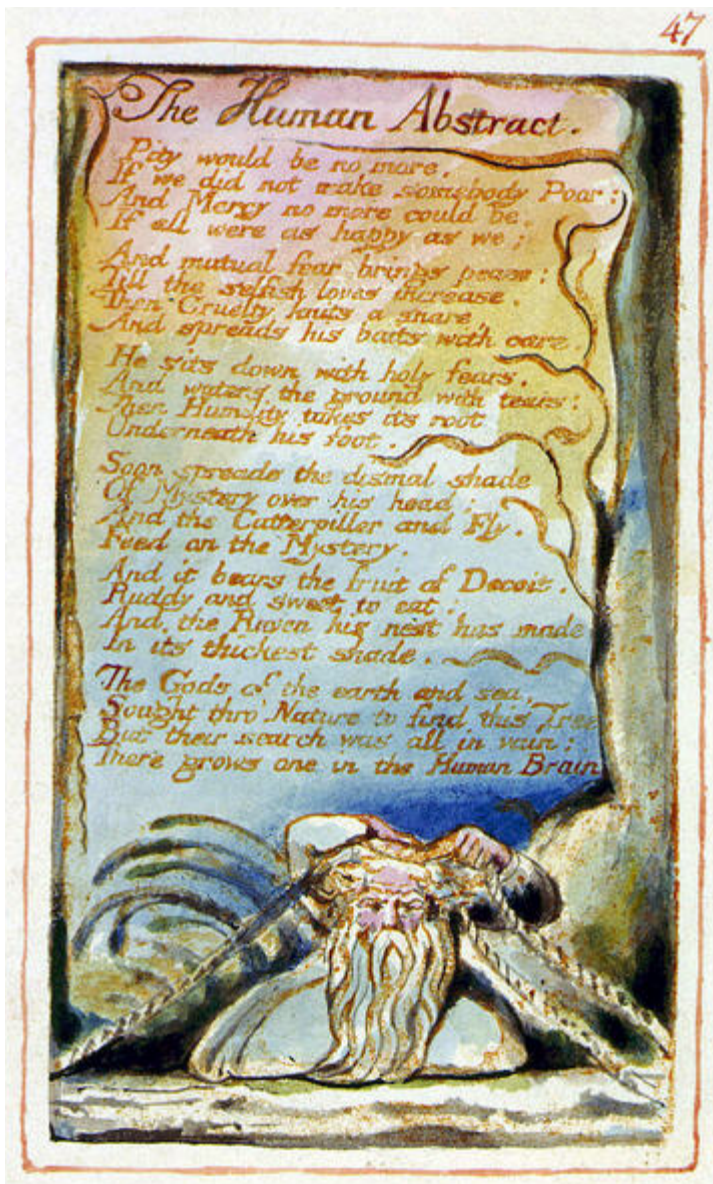 47
The Human Abstract.
Pity would be no more,
If we did not make somebody Poor:
And Mercy no more could be,
If all were as happy as we;
And mutual fear brings peace:
Till the selfish loves increase.
Then Cruelty knits a snare,
And spreads his baits with care.
He sits down with holy fears,
And waters the ground with tears:
Then Humility takes its root
Underneath his foot.
Soon spreads the dismal shade
Of Mystery over his head;
And the Catterpiller and Fly,
Feed on the Mystery.
And it bears the fruit of Deceit,
Ruddy and sweet to eat:
And the Raven his nest has made
In its thickest shade.
The Gods of the earth and sea,
Sought thro' Nature to find this Tree
But their search was all in vain:
There grows one in the Human Brain